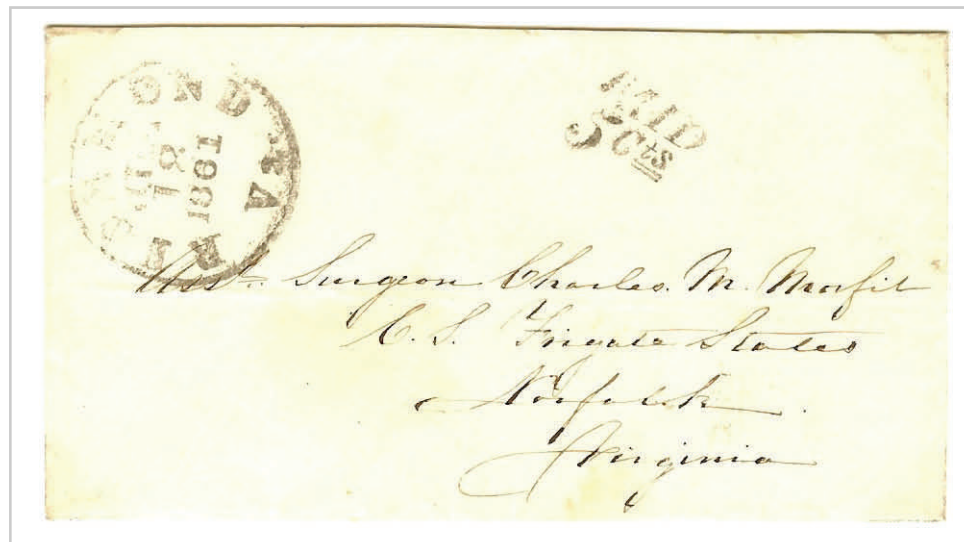 RICHMOND VA.
18
1861
PAID
5 Cts
Asst. Surgeon Charles. M. Morfit
C. S. Frigate States
Norfolk.
Virginia